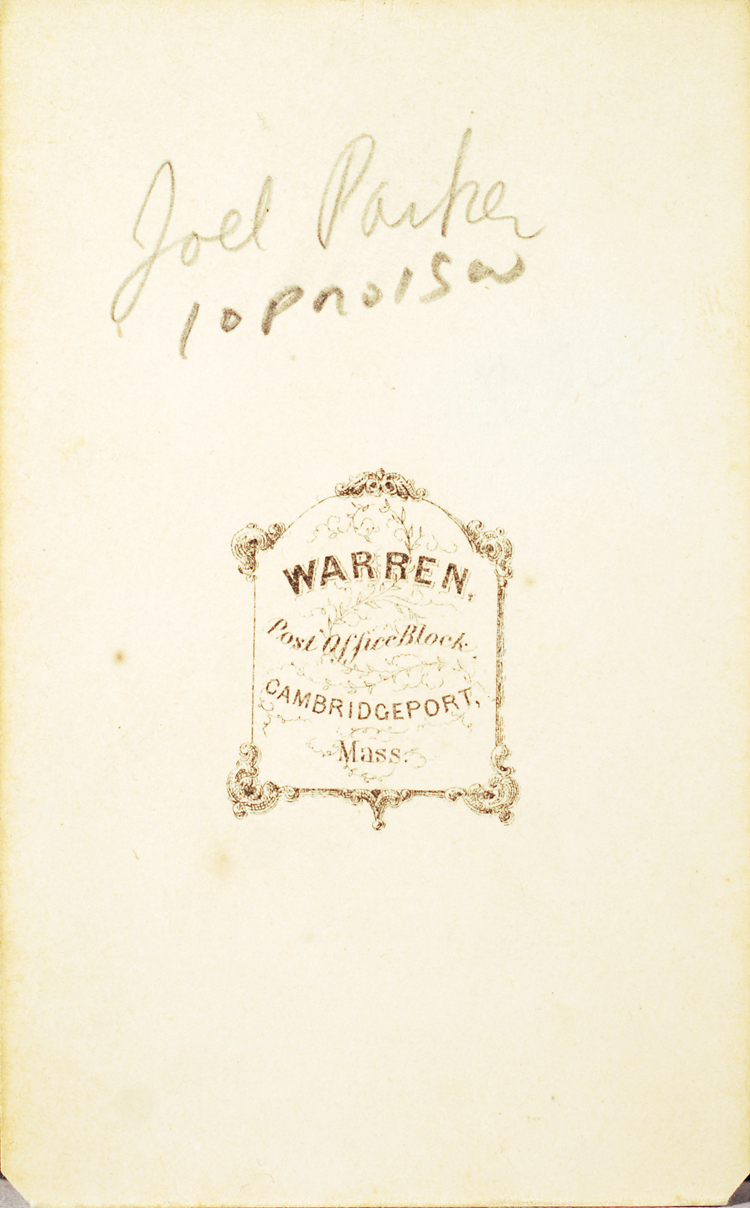 Joel Parker
WARREN,
Post Office Block.
CAMBRIDGEPORT,
Mass.